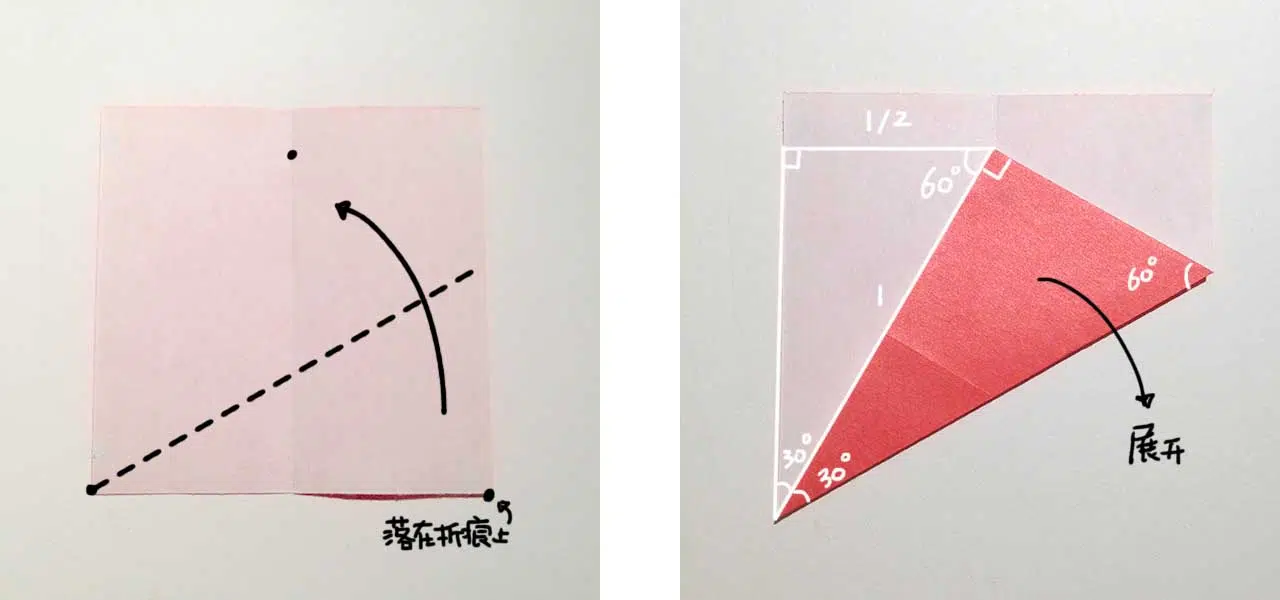 落在折痕上
1/2
60°
60°
1
30°
30°
展开